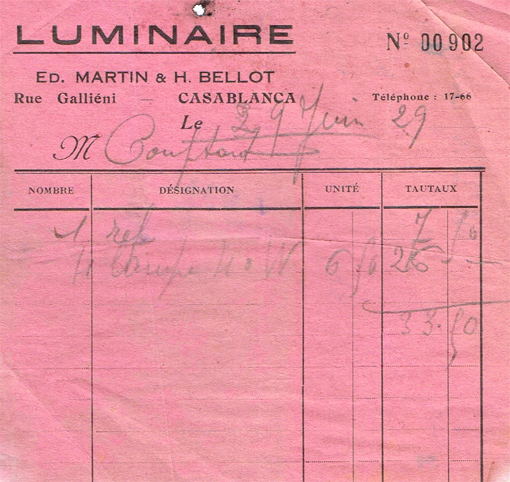 LUMINAIRE
Nº 00902
ED. MARTIN & H. BELLOT
Rue Galliéni — CASABLANCA
Téléphone : 17-66
Le 29 Juin 29
M Comptant
NOMBRE DÉSIGNATION UNITÉ TAUTAUX
1 7 50
4 6 50 26 -
33.50